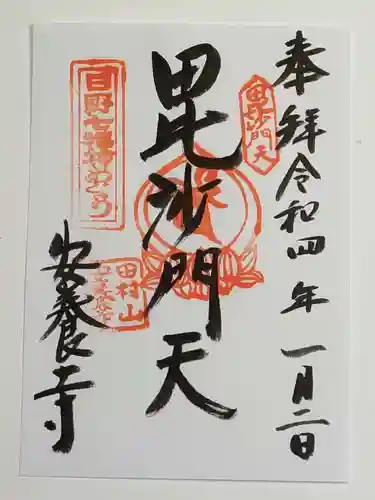 奉拝 令和四年 一月二日
毘沙門天
毘沙門天
日野七福神めぐり
安養寺
田村山
安養寺